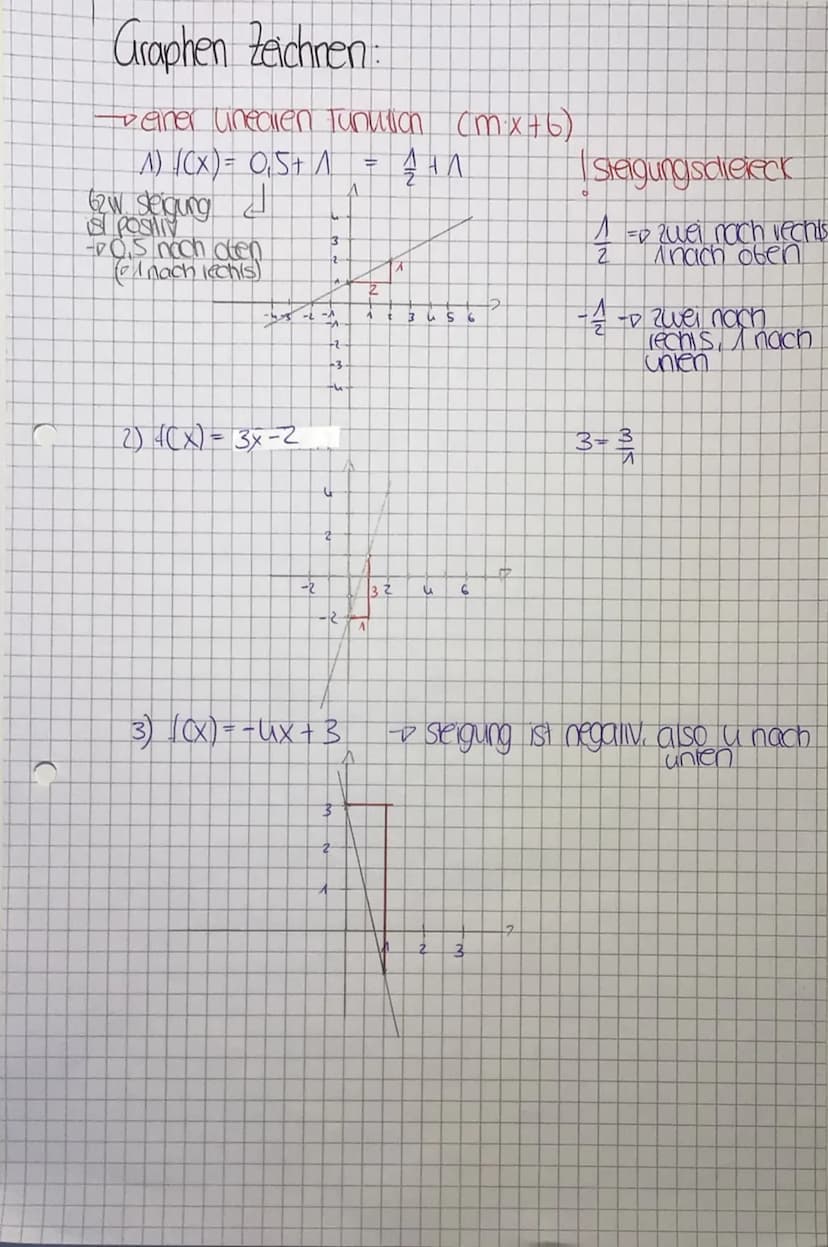 Graphen Zeichnen:
→ einer linearen Funktion (m·x+b)
1) f(x) = 0,5 + 1 = 1/2 + 1
! Steigungsdreieck
bzw. Steigung
ist positiv
→ 0,5 nach oben
(& 1 nach rechts)
1/2 => zwei nach rechts
1 nach oben
-1/2 → zwei nach
rechts, 1 nach
unten
4
3
2
1
1
2
-4 -3 -2 -1 1 2 3 4 5 6
-1
-2
-3
-4
2) f(x) = 3x-2
3 = 3/1
4
2
-2 3 2 4 6
-2
1
3) f(x) = -4x + 3 → Steigung ist negativ, also 4 nach
unten
3
2
1
1 2 3